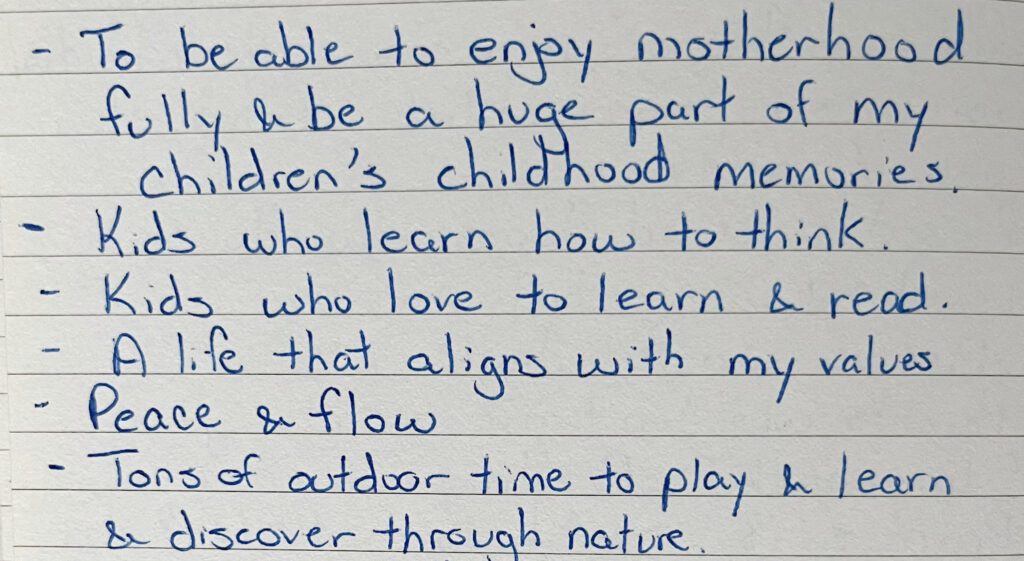 - To be able to enjoy motherhood
fully & be a huge part of my
children's childhood memories.
- Kids who learn how to think.
- Kids who love to learn & read.
- A life that aligns with my values
- Peace & flow
- Tons of outdoor time to play & learn
& discover through nature.